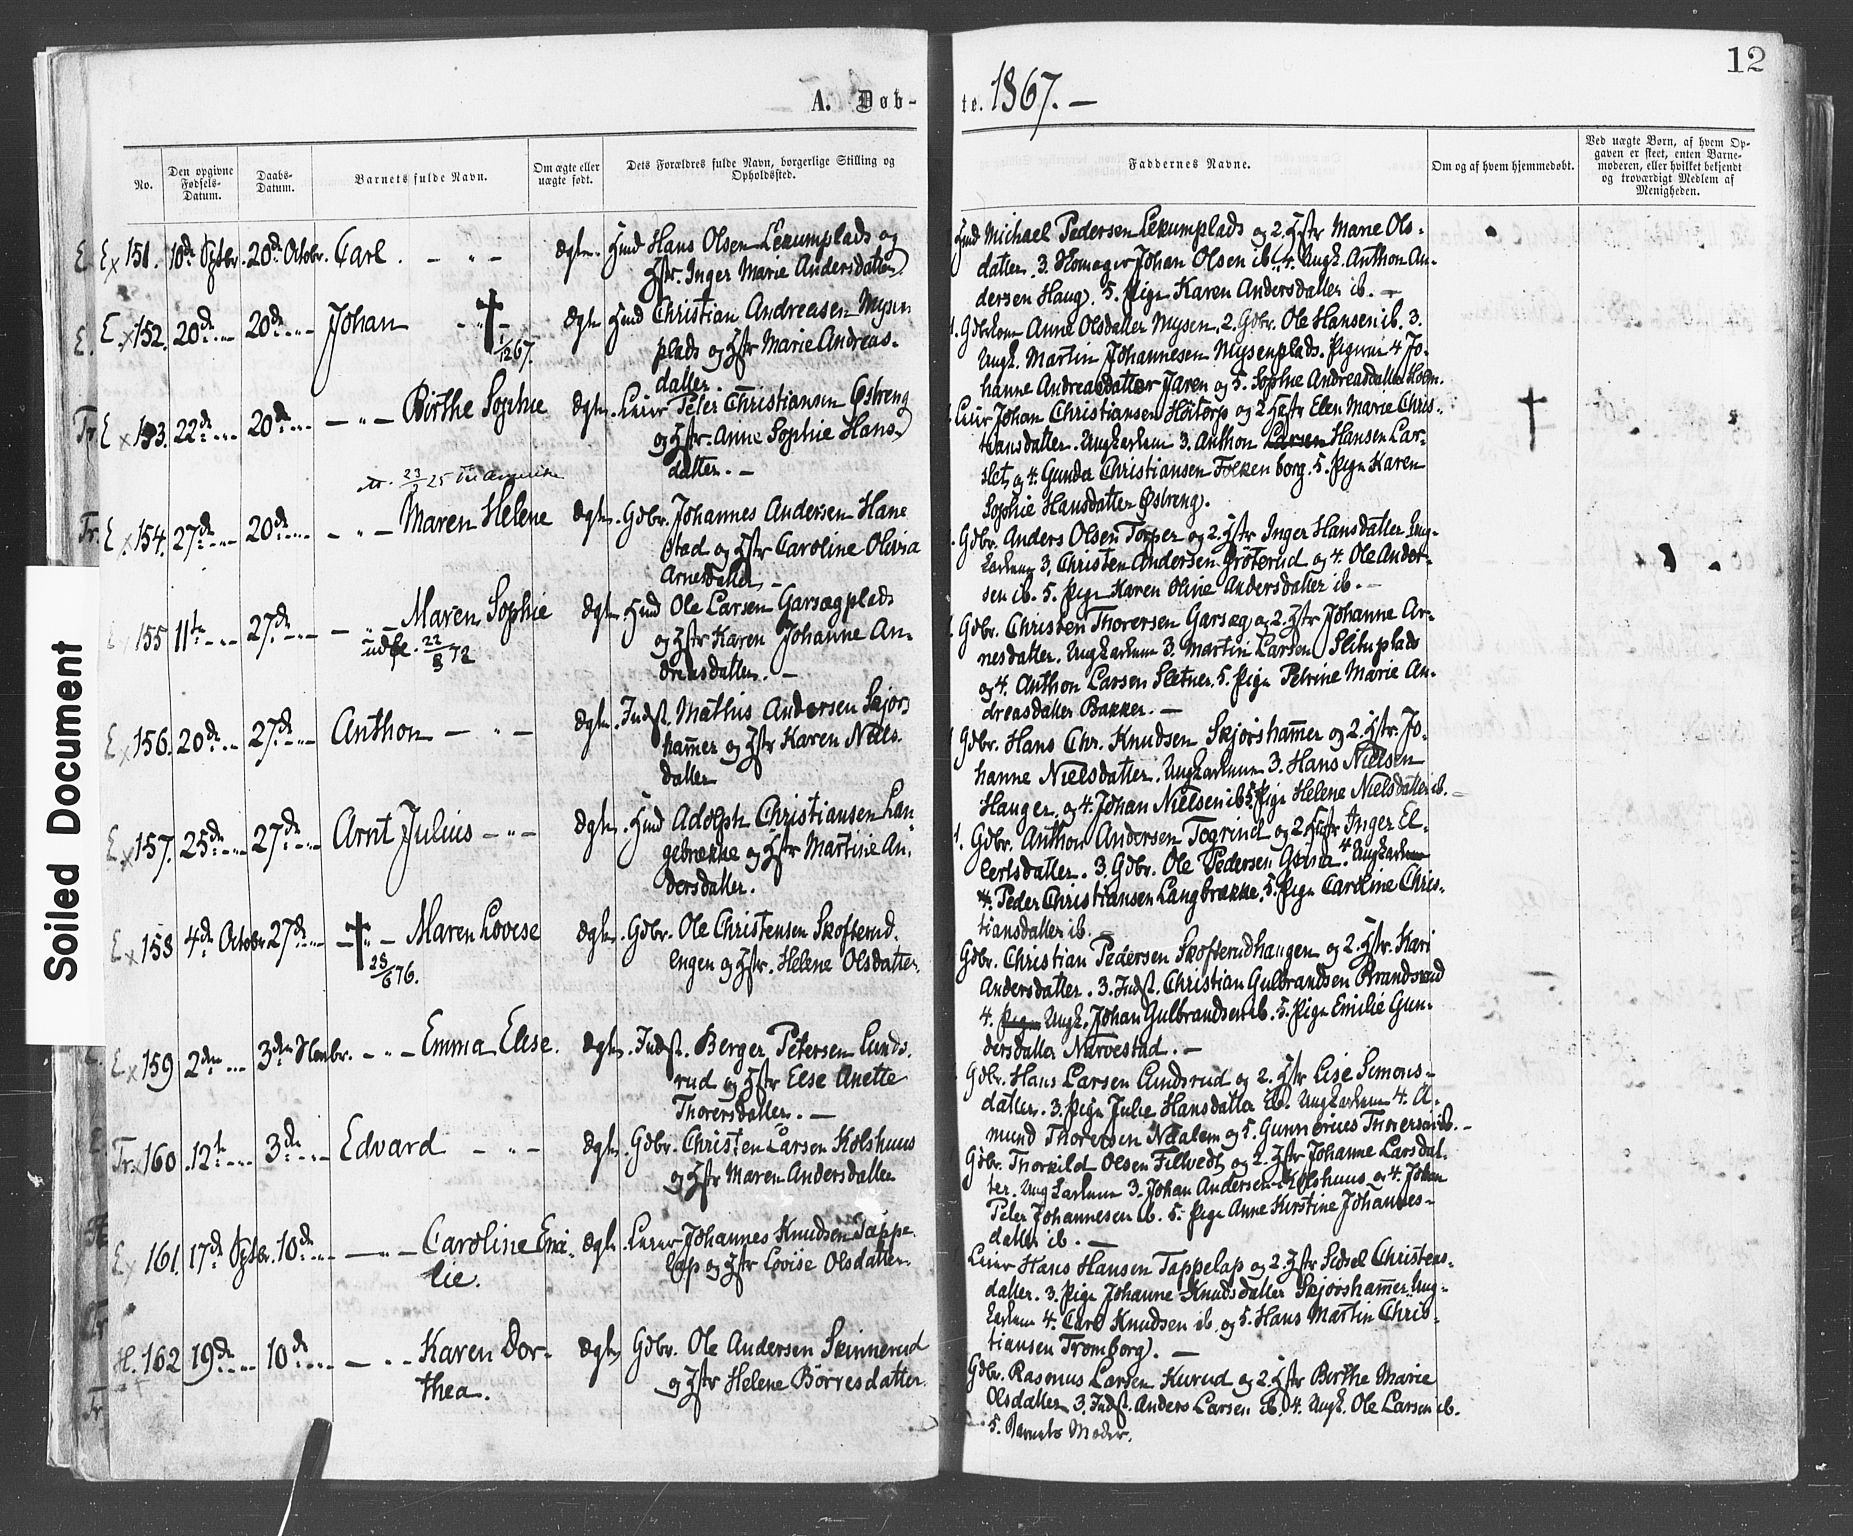 12
A. Døb-
te. 1867. —
No.
Den opgivne Fødsels-Datum.
Daabs-Datum.
Barnets fulde Navn.
Om ægte eller uægte født.
Dets Forældres fulde Navn, borgerlige Stilling og Opholdssted.
Faddernes Navne.
Om og af hvem hjemmedøbt.
Ved uægte Børn, af hvem Opgaven er skeet, enten Barnemoderen, eller hvilket bekjendt og troværdigt Medlem af Menigheden.
E. Ex 151. 10de Sptbr. 20de Octobr. Carl. — „ — ægte. Hmd Hans Olsen Lekumplads og
Hstr. Inger Marie Andersdatter
Hmd Michael Pedersen Lekumplads og 2. Hstr Marie Ols-
datter. 3. Johan Olsen ib. 4. Ungk. Anthon An-
dersen Haug. 5. Pige Karen Andersdatter ib. —
E. Ex 152. 20de 20de Johan † 1/12 67. ægte Hmd Christian Andreasen Mysen
plads og Hstr Marie Andreas-
datter.
1. Gdbrkone Anne Olsdatter Mysen. 2. Gdbr. Ole Hansen ib. 3.
Ungk. Martin Johannesen Mysenplads. Pigerne 4 Jo-
hanne Andreasdatter Jaren og 5. Sophie Andreasdatter Holm.
Tr. Ex 153. 22de 20de — „ — Birthe Sophie ægte. Leier Peter Christiansen Østreng
og Hstr. Anne Sophie Hans-
datter. —
Leier Johan Christiansen Höitorp og 2 Hstr Elen Marie Chris-
tiansdatter. Ungkarlene 3. Anthon Larsen Hansen Lar-
slet og 4. Gunder Christiansen Folkenborg. 5. Pige Karen
Sophie Hansdatter Østreng.
Tr. Ex 154. 27de 20de — „ — Maren Helene ægte. Gdbr. Johannes Andersen Hane
stad og Hstr Caroline Olivia
Arnesdatter —
Gdbr. Anders Olsen Torper og 2. Hstr Inger Hansdatter Ung-
karlene 3. Christen Andersen Gröterud og 4. Ole Ander-
sen ib. 5. Pige Karen Oline Andersdatter ib. —
155 11te 27de — „ — Maren Sophie ægte Hmd Ole Larsen Garsegplads
udfl. 22/3 72
og Hstr Karen Johanne An-
dreasdatter. —
Gdbr. Christen Thorersen Garseg og 2. Hstr Johanne Ar-
nesdatter. Ungkarlene 3. Martin Larsen Slituplads
og 4. Anthon Larsen Sletner. 5. Pige Petrine Marie An-
dreasdatter Bakker. —
Ex 156. 20de 27de Anthon — „ — ægte. Indst. Mathis Andersen Skjørs
hammer og Hstr Karen Niels-
datter
Gdbr. Hans Chr. Knudsen Skjørshammer og 2. Hstr. Jo-
hanne Nielsdatter. Ungkarlene 3. Hans Nielsen
Hauger og 4. Johan Nielsen ib 5. Pige Helene Nielsdatter ib. —
Ex 157. 25de 27de Arnt Julius — „ — ægte. Hmd Adolph Christiansen Lan-
gebrække og Hstr Martine An-
dersdatter.
1. Gdbr. Anthon Andersen Togrind og 2. Hstr Inger El-
lertsdatter. 3. Gdbr. Ole Pedersen 4 Ungkarlene
4. Peder Christiansen Langbrække. 5. Pige Caroline Chris-
tiansdatter ib. —
Ex 158 4de Octobr 27de † — Maren Lovise ægte. Gdbr. Ole Christensen Skofterud.
25/6 76.
engen og Hstr. Helene Olsdatter.
Gdbr. Christian Pedersen Skofterudhaugen og 2. Hstr. Kari
Andersdatter. 3. Indst. Christian Gulbrandsen Brandsrud
4. Pige Ungk. Johan Gulbrandsen ib. 5. Pige Emilie Gun-
dersdatter Narvestad. —
Ex 159 2den 3den Novbr. — „ — Emma Elise. ægte. Indst. Berger Petersen Lunds-
rud og Hstr Else Anette
Thorersdatter. —
Gdbr. Hans Larsen Lundsrud og 2. Hstr Lise Simons-
datter. 3. Pige Julie Hansdatter ib. Ungkarlene 4. A-
mund Thorersen og 5. Gunnerius Thorersen ib. —
Tr. 160. 12te 3de Edvard — „ — ægte. Gdbr. Christen Larsen Kolshuus
og Hstr Maren Andersdatter
Gdbr. Thorkild Olsen Fillvedt og 2. Hstr Johanne Larsdat-
ter. Ungkarlene 3. Johan Andersen Kolshuus og 4. Johan
Peter Johannesen ib. 5. Pige Anne Kirstine Johannes-
datter ib. —
Ex 161. 17de Sptbr. 10de — „ — Caroline Emi-
lie.
ægte. Leier Johannes Knudsen Tappe-
lap og Hstr Lovise Olsdatter.
Leier Hans Hansen Tappelap og 2. Hstr Sidsel Christens-
datter. 3. Pige Johanne Knudsdatter Skjørshammer. Ung-
karlene 4. Carl Knudsen ib. og 5. Hans Martin Chris-
tiansen Tromborg. —
H. 162 19de 10de — „ — Karen Dor-
thea.
ægte Gdbr. Ole Andersen Skinnerud
og Hstr Helene Börresdatter.
Gdbr. Rasmus Larsen Kurud og 2. Hstr Berthe Marie
Olsdatter 3. Indst. Anders Larsen ib. 4. Ungk. Ole Larsen ib.
5. Barnets Moder.
Soiled Document